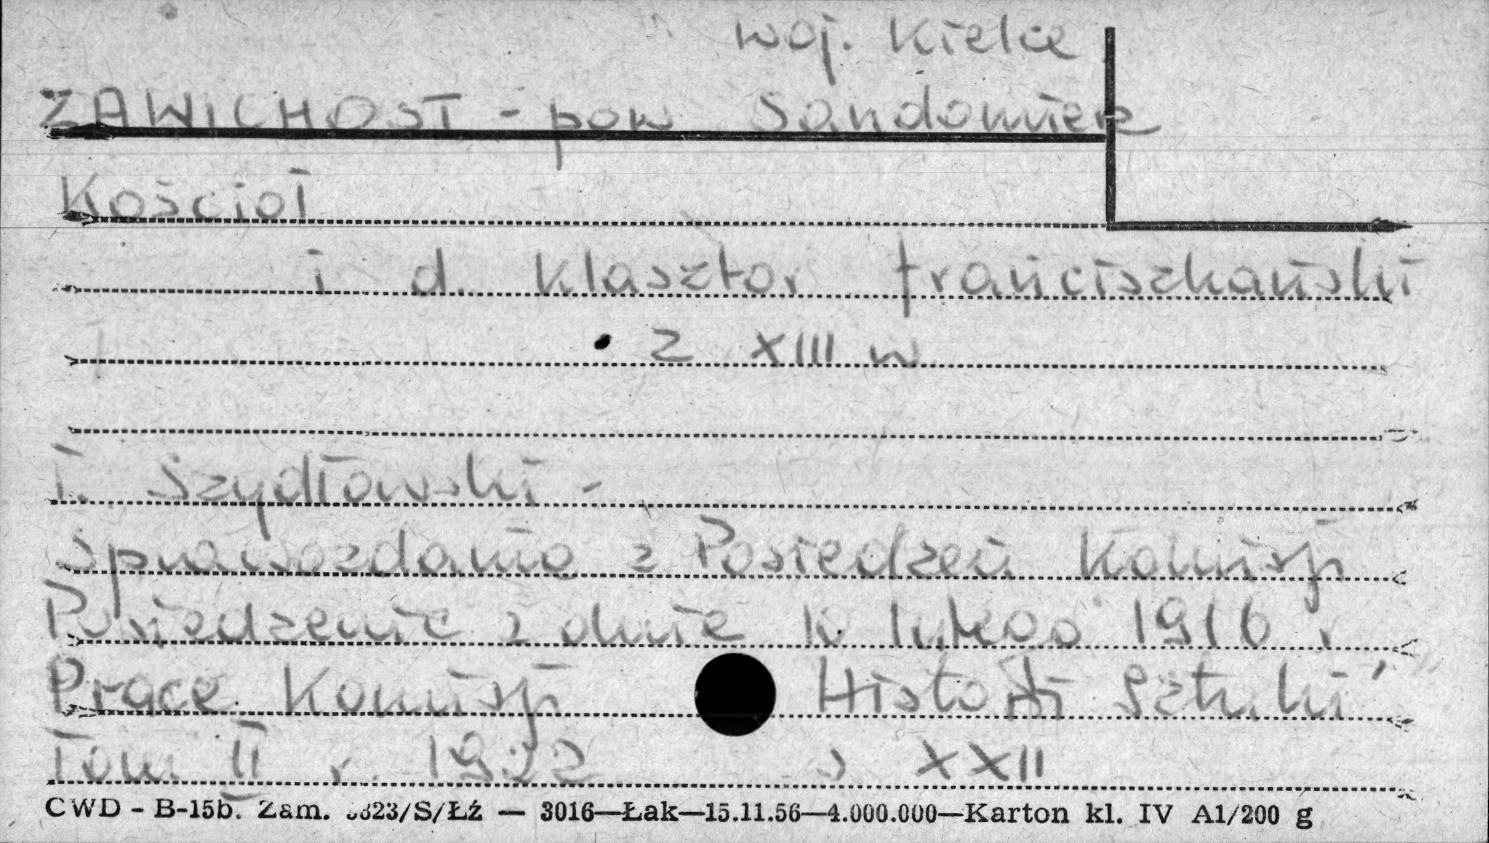 woj. Kielce
ZAWICHOST - pow Sandomierz
Kościoł
i d. klasztor franciszkański
z XIII w
T. Szydłowski -
Sprawozdanie z Posiedzeń Komisji
Posiedzenie z dnia 10 lutego 1916 r
Prace Komisji Historii Sztuki
Tom II r. 1922 s XXII
CWD - B-15b. Zam. 3823/S/Łź — 3016—Łak—15.11.56—4.000.000—Karton kl. IV A1/200 g